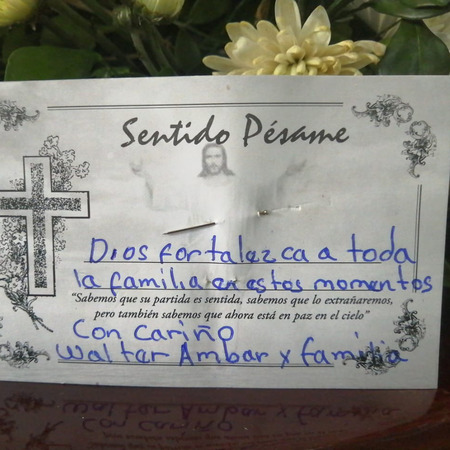 Sentido Pésame
Dios fortalezca a toda
la familia en estos momentos
"Sabemos que su partida es sentida, sabemos que lo extrañaremos,
pero también sabemos que ahora está en paz en el cielo"
Con cariño
Walter Ambar x familia